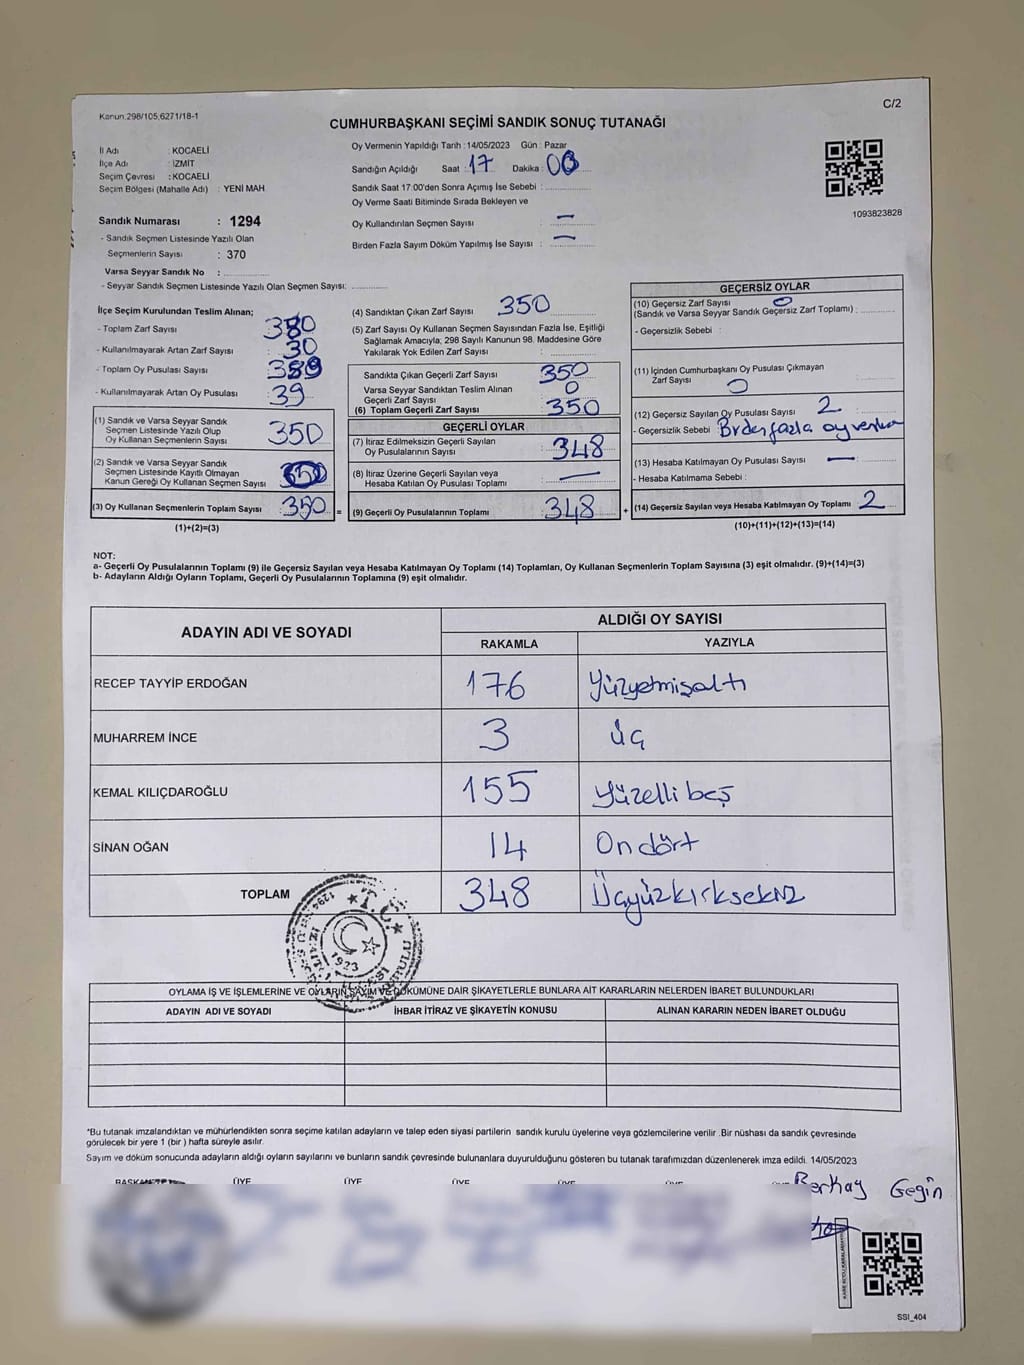 C/2
Kanun:298/105;6271/18-1
CUMHURBAŞKANI SEÇİMİ SANDIK SONUÇ TUTANAĞI
İl Adı : KOCAELİ
İlçe Adı : İZMİT
Seçim Çevresi : KOCAELİ
Seçim Bölgesi (Mahalle Adı) : YENİ MAH
Oy Vermenin Yapıldığı Tarih :14/05/2023 Gün : Pazar
Sandığın Açıldığı Saat : 17 Dakika : 00
Sandık Saat 17:00'den Sonra Açmış İse Sebebi :
Oy Verme Saati Bitiminde Sırada Bekleyen ve
Oy Kullandırılan Seçmen Sayısı : —
Birden Fazla Sayım Döküm Yapılmış İse Sayısı : —
1093823828
Sandık Numarası : 1294
- Sandık Seçmen Listesinde Yazılı Olan
Seçmenlerin Sayısı : 370
Varsa Seyyar Sandık No :
- Seyyar Sandık Seçmen Listesinde Yazılı Olan Seçmen Sayısı:
İlçe Seçim Kurulundan Teslim Alınan;
- Toplam Zarf Sayısı : 380
- Kullanılmayarak Artan Zarf Sayısı : 30
- Toplam Oy Pusulası Sayısı : 389
- Kullanılmayarak Artan Oy Pusulası : 39
(1) Sandık ve Varsa Seyyar Sandık
Seçmen Listesinde Yazılı Olup
Oy Kullanan Seçmenlerin Sayısı : 350
(2) Sandık ve Varsa Seyyar Sandık
Seçmen Listesinde Kayıtlı Olmayan
Kanun Gereği Oy Kullanan Seçmen Sayısı :
(3) Oy Kullanan Seçmenlerin Toplam Sayısı : 350 =
(1)+(2)=(3)
(4) Sandıktan Çıkan Zarf Sayısı : 350
(5) Zarf Sayısı Oy Kullanan Seçmen Sayısından Fazla İse, Eşitliği
Sağlamak Amacıyla; 298 Sayılı Kanunun 98. Maddesine Göre
Yakılarak Yok Edilen Zarf Sayısı :
Sandıkta Çıkan Geçerli Zarf Sayısı : 350
Varsa Seyyar Sandıktan Teslim Alınan
Geçerli Zarf Sayısı : 0
(6) Toplam Geçerli Zarf Sayısı : 350
GEÇERLİ OYLAR
(7) İtiraz Edilmeksizin Geçerli Sayılan
Oy Pusulalarının Sayısı : 348
(8) İtiraz Üzerine Geçerli Sayılan veya
Hesaba Katılan Oy Pusulası Toplamı : —
(9) Geçerli Oy Pusulalarının Toplamı : 348 +
GEÇERSİZ OYLAR
(10) Geçersiz Zarf Sayısı 0
(Sandık ve Varsa Seyyar Sandık Geçersiz Zarf Toplamı) :
- Geçersizlik Sebebi :
(11) İçinden Cumhurbaşkanı Oy Pusulası Çıkmayan
Zarf Sayısı : 0
(12) Geçersiz Sayılan Oy Pusulası Sayısı : 2
- Geçersizlik Sebebi : Birden fazla oy
(13) Hesaba Katılmayan Oy Pusulası Sayısı : —
- Hesaba Katılmama Sebebi :
(14) Geçersiz Sayılan veya Hesaba Katılmayan Oy Toplamı : 2
(10)+(11)+(12)+(13)=(14)
NOT:
a- Geçerli Oy Pusulalarının Toplamı (9) ile Geçersiz Sayılan veya Hesaba Katılmayan Oy Toplamı (14) Toplamları, Oy Kullanan Seçmenlerin Toplam Sayısına (3) eşit olmalıdır. (9)+(14)=(3)
b- Adayların Aldığı Oyların Toplamı, Geçerli Oy Pusulalarının Toplamına (9) eşit olmalıdır.
ADAYIN ADI VE SOYADI ALDIĞI OY SAYISI
RAKAMLA YAZIYLA
RECEP TAYYİP ERDOĞAN 176 Yüzyetmişaltı
MUHARREM İNCE 3 üç
KEMAL KILIÇDAROĞLU 155 Yüzelli beş
SİNAN OĞAN 14 On dört
TOPLAM 348 Üçyüzkırksekiz
T.C.
1923
OYLAMA İŞ VE İŞLEMLERİNE VE OYLARIN SAYIM VE DÖKÜMÜNE DAİR ŞİKAYETLERLE BUNLARA AİT KARARLARIN NELERDEN İBARET BULUNDUKLARI
ADAYIN ADI VE SOYADI İHBAR İTİRAZ VE ŞİKAYETİN KONUSU ALINAN KARARIN NEDEN İBARET OLDUĞU
*Bu tutanak imzalandıktan ve mühürlendikten sonra seçime katılan adayların ve talep eden siyasi partilerin sandık kurulu üyelerine veya gözlemcilerine verilir .Bir nüshası da sandık çevresinde
görülecek bir yere 1 (bir ) hafta süreyle asılır.
Sayım ve döküm sonucunda adayların aldığı oyların sayılarını ve bunların sandık çevresinde bulunanlara duyurulduğunu gösteren bu tutanak tarafımızdan düzenlenerek imza edildi. 14/05/2023
BAŞKAN ÜYE ÜYE ÜYE ÜYE ÜYE
Berkay Gegin
SSI_404